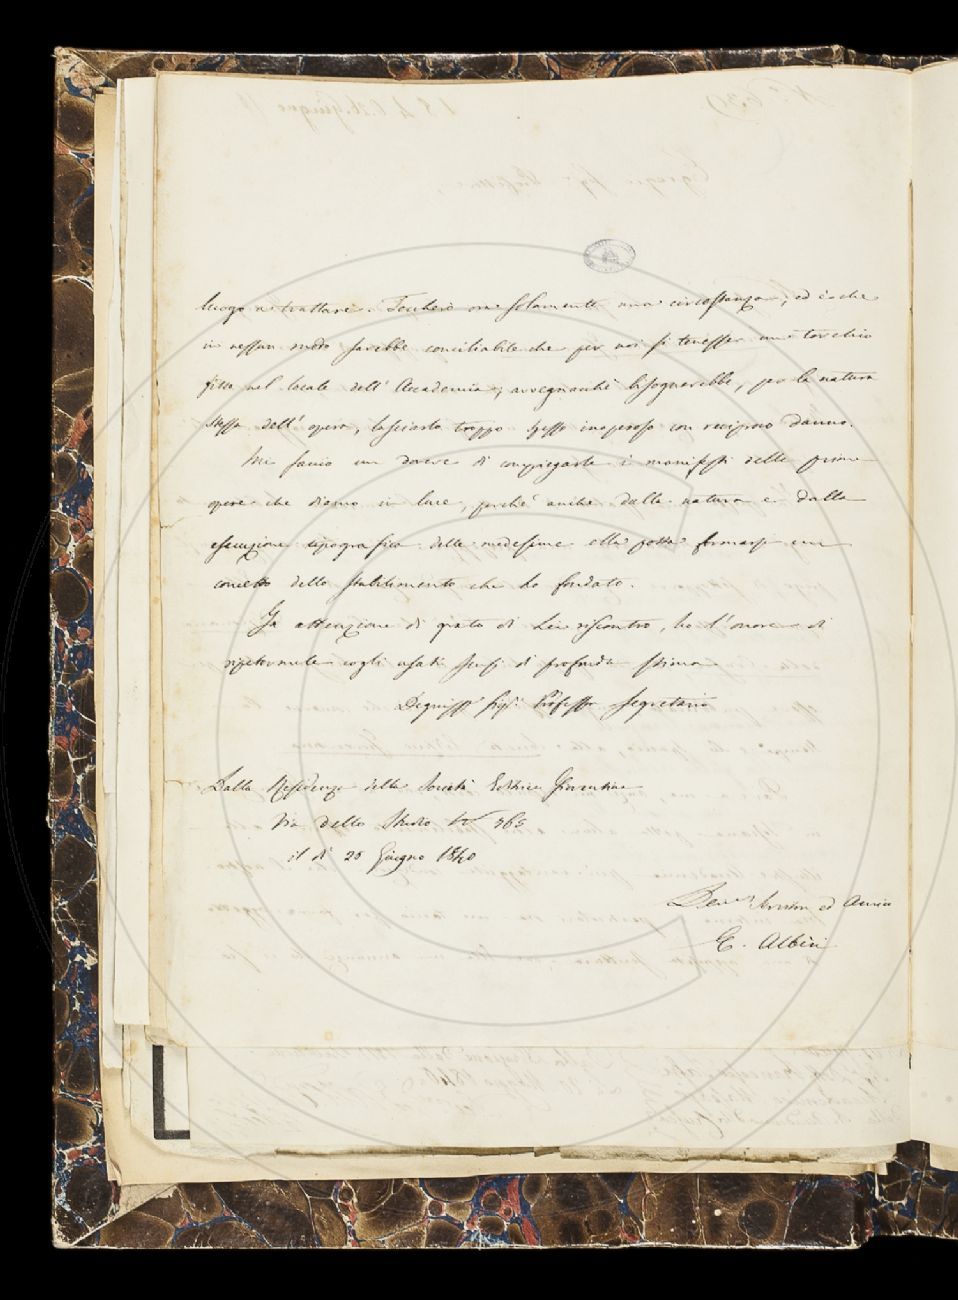 luogo a trattare. Toccherò ora solamente una circostanza, ed è che
in nessun modo sarebbe conciliabile che per noi si tenesse un torchio
fisso nel locale dell' Accademia; avvegnachè bisognerebbe, per la natura
stessa dell' opera, lasciarlo troppo spesso inoperoso con reciproco danno.
Mi faccio un dovere di compiegarle i manifesti delle prime
opere che diamo in luce, perchè anche dalla natura e dalla
esecuzione tipografica delle medesime ella possa formarsi un
concetto dello stabilimento che ho fondato.
In attenzione di grato di Lei riscontro, ho l'onore di
ripetermele cogli usati sensi di profonda stima
Degniss. Sig. Professor Segretario
Dalla Residenza della Società Editrice Fiorentina
Via dello Studio N°
il dì 25 Giugno 1840
Dev. Servitore ed Amico
E. Albèri